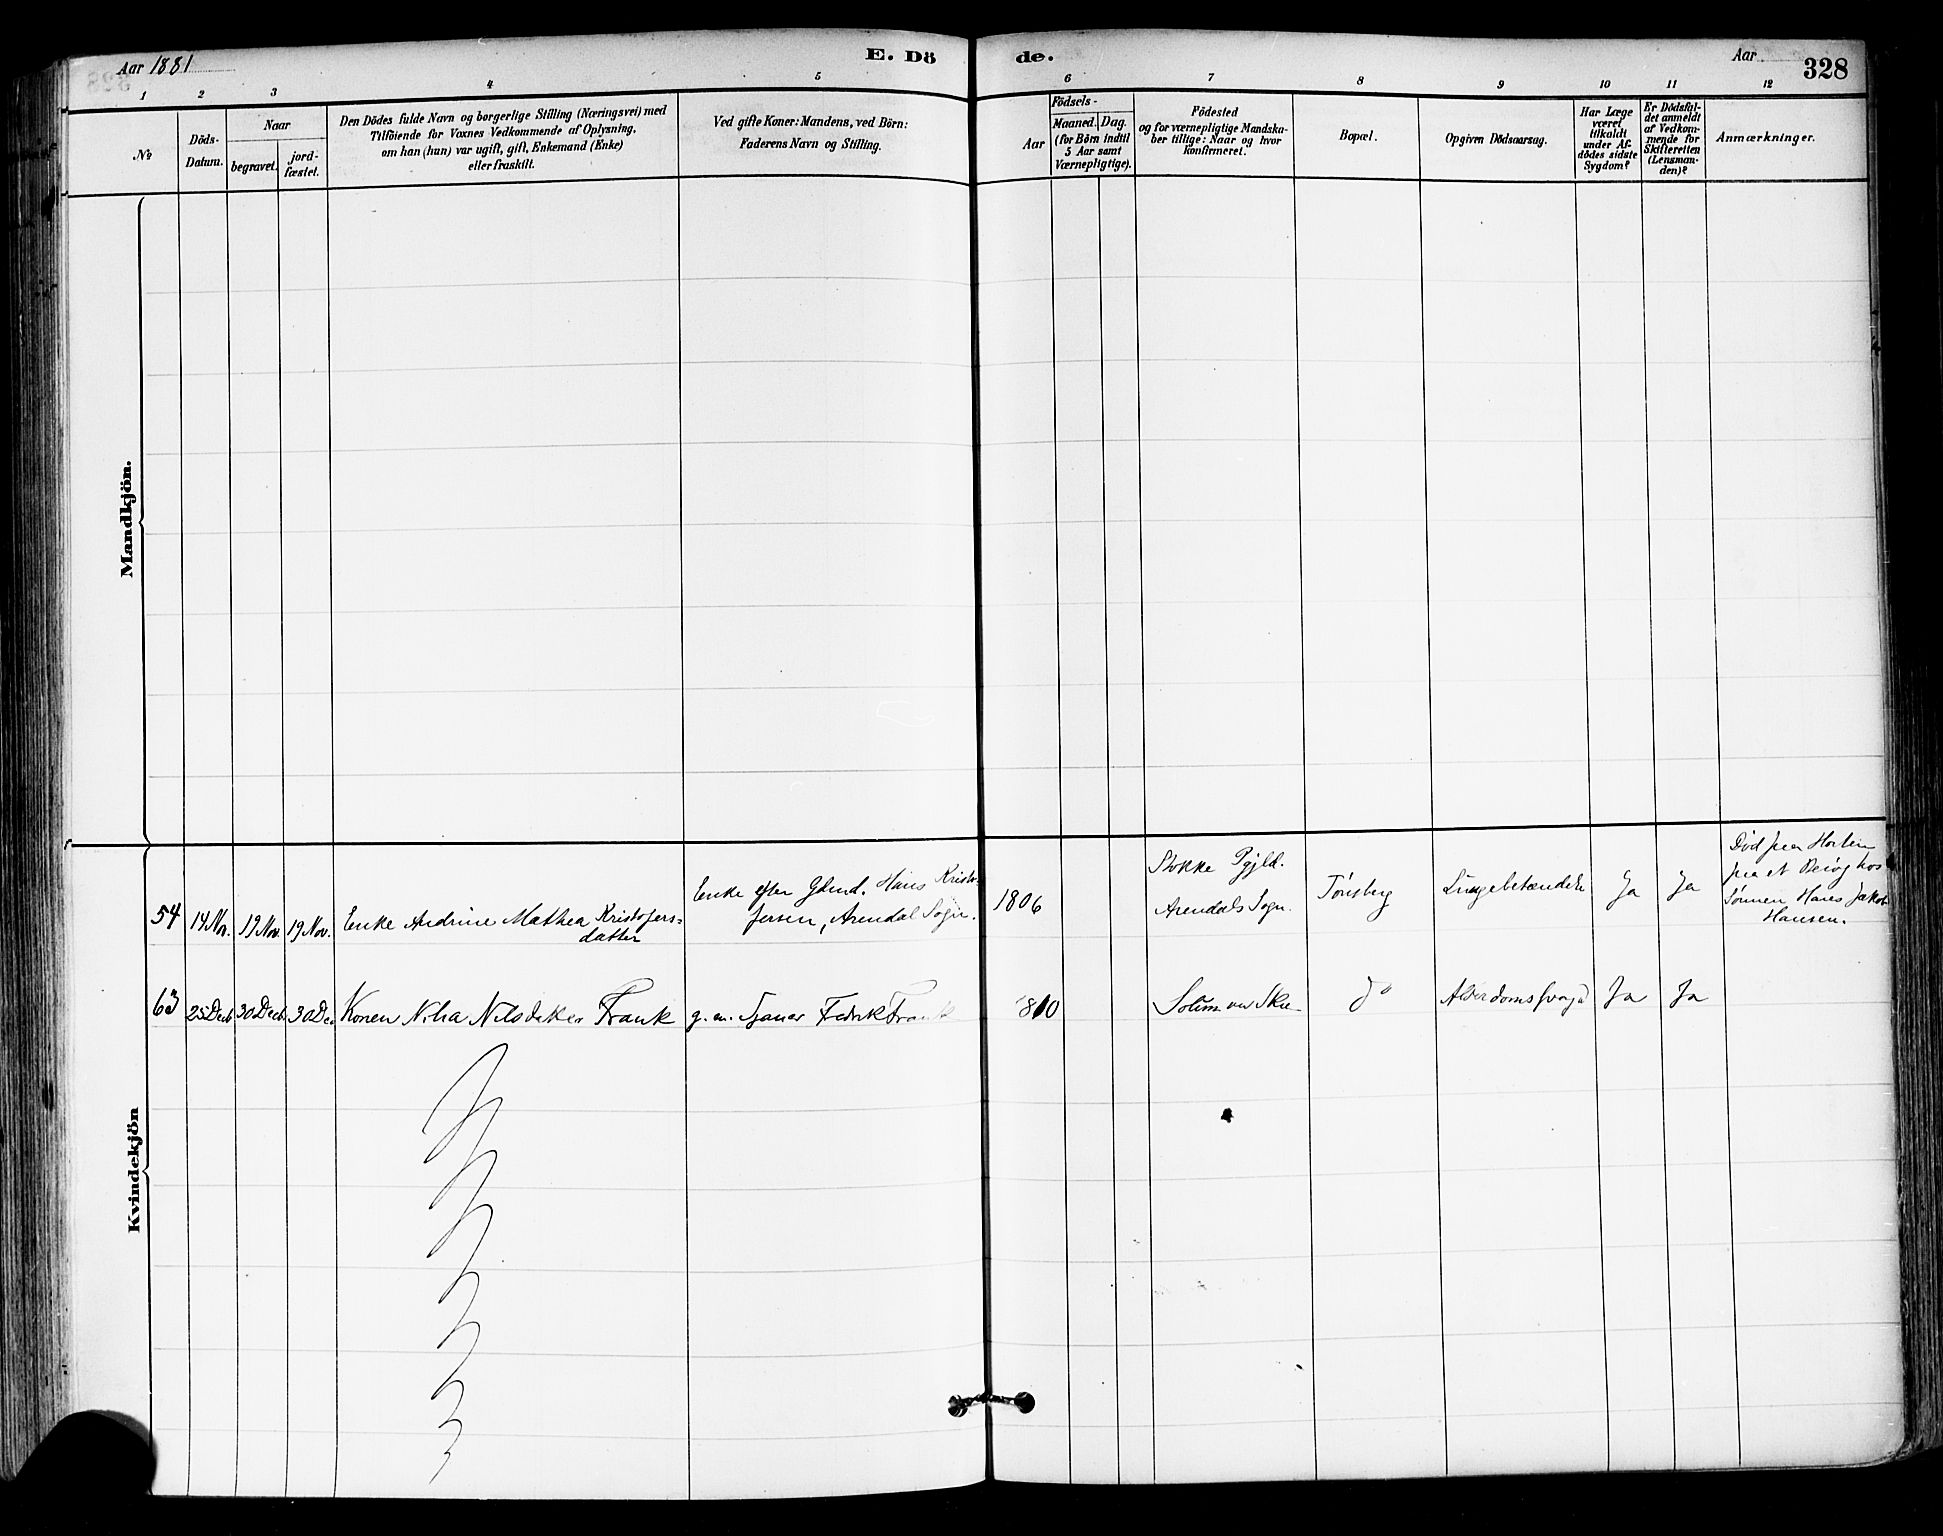 Aar 1881
E. Dö
de.
Aar
328
1 2 3 4 5 6 7 8 9 10 11 12
№
Döds-
Datum.
Naar
begravet.
jord-
fæstet.
Den Dödes fulde Navn og borgerlige Stilling (Næringsvei) med
Tilföiende for Voxnes Vedkommende af Oplysning,
om han (hun) var ugift, gift, Enkemand (Enke)
eller fraskilt.
Ved gifte Koner: Mandens, ved Börn:
Faderens Navn og Stilling.
Aar
Födsels-
Maaned. Dag.
(for Börn indtil
5 Aar samt
Værnepligtige).
Födested
og for værnepligtige Mandska-
ber tillige: Naar og hvor
konfirmeret.
Bopæl.
Opgiven Dödsaarsag.
Har Læge
været
tilkaldt
under Af-
dödes sidste
Sygdom?
Er Dödsfal-
det anmeldt
af Vedkom-
mende for
Skifteretten
(Lensman-
den)?
Anmærkninger.
Mandkjön.
Kvindekjön
54
14 Nov.
19 Nov.
19 Nov.
Enke Andrine Mathea Kristofers-
datter
Enke efter Gbmd. Hans Kristo-
fersen, Arendal Sogn.
1806
Stokke Pgjld.
Arendals Sogn.
Tønsberg
Lungebetændelse
Ja
Ja
Død paa Horten
paa et Besøg hos
Sønnen Hans Jakob
Hansen.
63
25 Decb
30 Decb
30 De
Konen Nilsdatter Frank
g. m. Fedrik Frank
1810
Solum
do
Alderdomssvagd
Ja
Ja